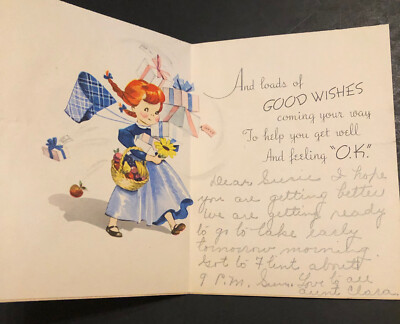 And loads of
GOOD WISHES
coming your way
To help you get well
And feeling "O.K."
Dear Susie I hope
you are getting better
we are getting ready
to go to lake early
tomorrow morning
got to Flint about
9 P.M. Sun. Love to all
aunt Clara